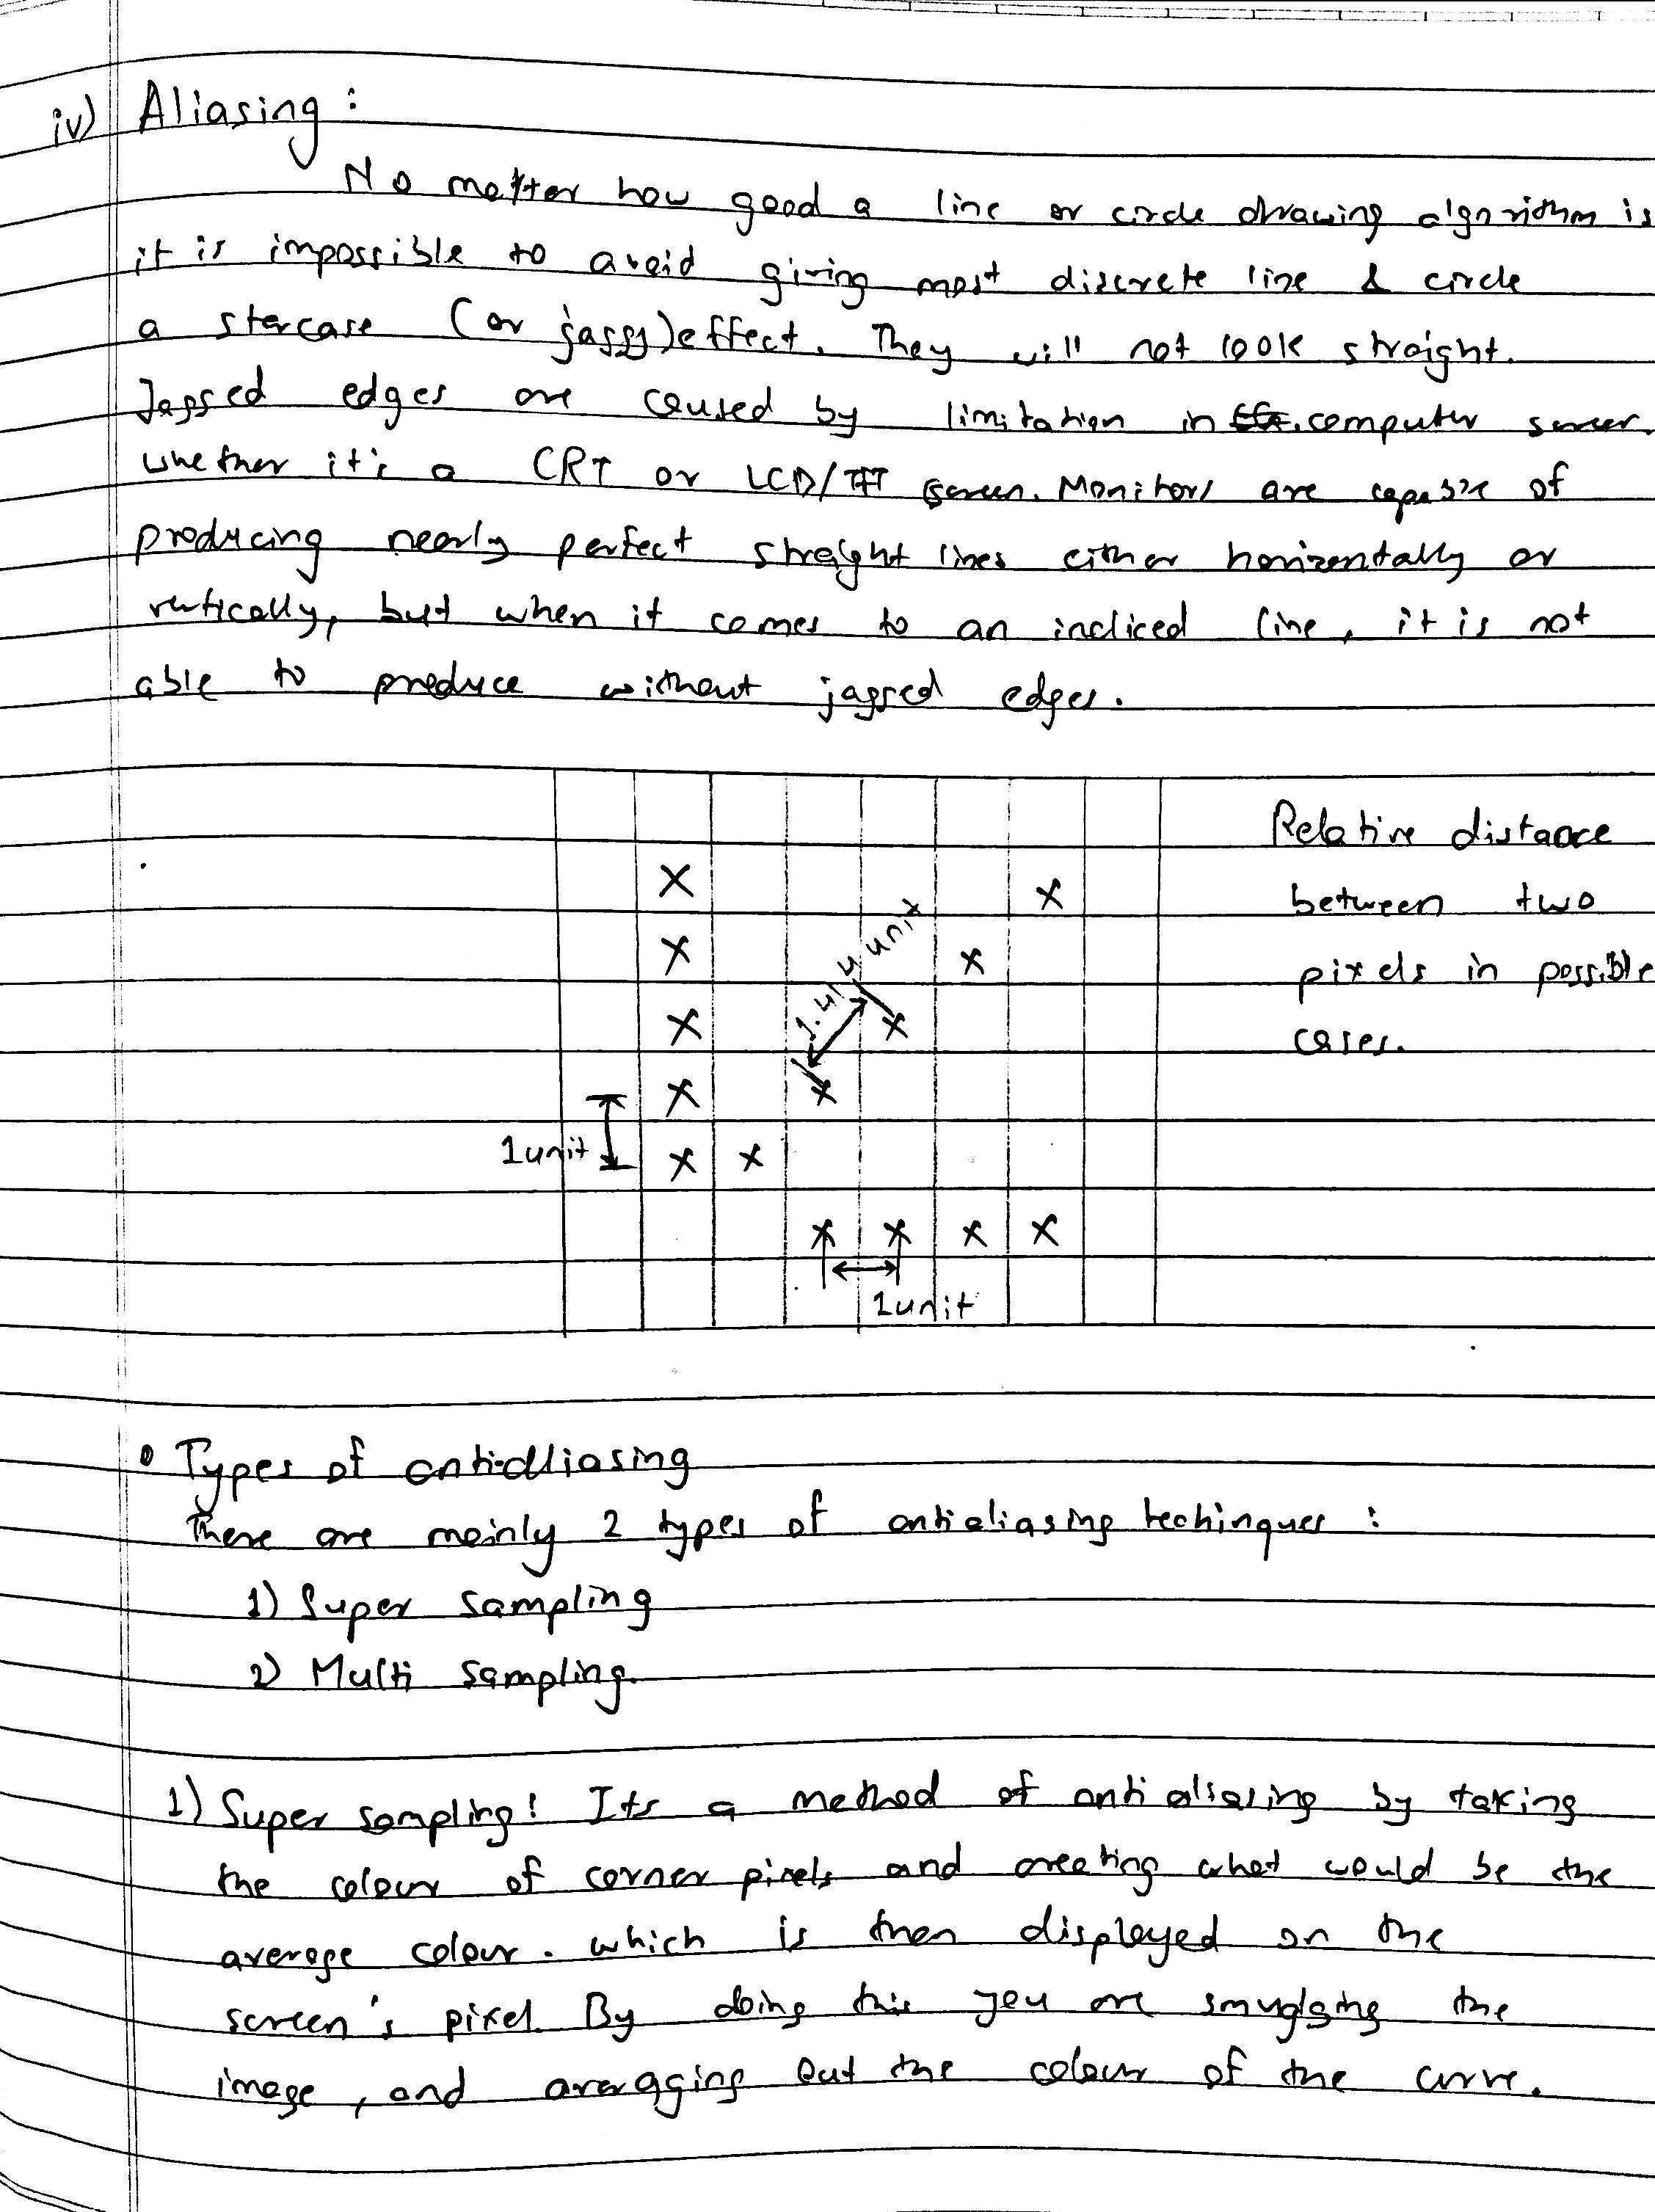 iv) Aliasing :
No matter how good a line or circle drawing algorithm is
it is impossible to avoid giving most discrete line & circle
a stercase (or jaggy) effect. They will not look straight.
Jagged edges are caused by limitation in computer screen.
whether it's a CRT or LCD/TFT screen. Monitors are capable of
producing nearly perfect straight lines either horizentally or
vertically, but when it comes to an incliced line, it is not
able to produce without jagged edges.
Relative distance
between two
pixels in possible
cases.
1.414 unit
1unit
1unit
• Types of anti-alliasing
There are mainly 2 types of antialiasing techinques :
1) Super sampling
2) Multi sampling.
1) Super sampling: Its a method of anti aliasing by taking
the colour of corner pixels and creating what would be the
average colour. which is then displayed on the
screen's pixel. By doing this you are smudging the
image, and averagging out the colour of the curve.